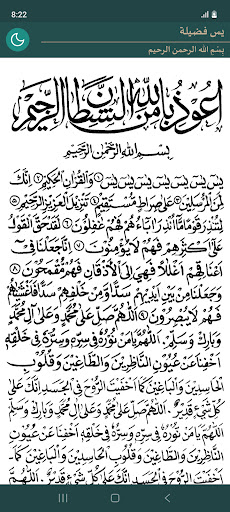 8:22
يس فضيلة
بِسْمِ الله الرحمن الرحيم
اعوذ بالله من الشيطان الرجيم
بِسْمِ اللهِ الرَّحْمٰنِ الرَّحِيْمِ
يٰسٓ يٰسٓ يٰسٓ يٰسٓ يٰسٓ يٰسٓ يٰسٓ وَالْقُرْاٰنِ الْحَكِيْمِ اِنَّكَ
لَمِنَ الْمُرْسَلِيْنَ عَلٰى صِرَاطٍ مُسْتَقِيْمٍ تَنْزِيْلَ الْعَزِيْزِ الرَّحِيْمِ
لِتُنْذِرَ قَوْمًا مَّا اُنْذِرَ اٰبَاۤؤُهُمْ فَهُمْ غٰفِلُوْنَ لَقَدْ حَقَّ الْقَوْلُ
عَلٰٓى اَكْثَرِهِمْ فَهُمْ لَا يُؤْمِنُوْنَ اِنَّا جَعَلْنَا فِيْٓ
اَعْنَاقِهِمْ اَغْلٰلًا فَهِيَ اِلَى الْاَذْقَانِ فَهُمْ مُّقْمَحُوْنَ
وَجَعَلْنَا مِنْ بَيْنِ اَيْدِيْهِمْ سَدًّا وَّمِنْ خَلْفِهِمْ سَدًّا فَاَغْشَيْنٰهُمْ
فَهُمْ لَا يُبْصِرُوْنَ اَللّٰهُمَّ صَلِّ عَلٰى مُحَمَّدٍ وَعَلٰى اٰلِ مُحَمَّدٍ
وَبَارِكْ وَسَلِّمْ اَللّٰهُمَّ يَا مَنْ نُوْرُهُ فِيْ سِرِّهِ وَسِرُّهُ فِيْ خَلْقِهِ
اَخْفِنَا عَنْ عُيُوْنِ النَّاظِرِيْنَ وَالطَّاغِيْنَ وَقُلُوْبِ
الْحَاسِدِيْنَ وَالْبَاغِيْنَ كَمَا اَخْفَيْتَ الرُّوْحَ فِي الْجَسَدِ اِنَّكَ عَلٰى
كُلِّ شَيْءٍ قَدِيْرٌ اَللّٰهُمَّ صَلِّ عَلٰى مُحَمَّدٍ وَعَلٰى اٰلِ مُحَمَّدٍ وَبَارِكْ وَسَلِّمْ
اَللّٰهُمَّ يَا مَنْ نُوْرُهُ فِيْ سِرِّهِ وَسِرُّهُ فِيْ خَلْقِهِ اَخْفِنَا عَنْ عُيُوْنِ
النَّاظِرِيْنَ وَالطَّاغِيْنَ وَقُلُوْبِ الْحَاسِدِيْنَ وَالْبَاغِيْنَ كَمَا
اَخْفَيْتَ الرُّوْحَ فِي الْجَسَدِ اِنَّكَ عَلٰى كُلِّ شَيْءٍ قَدِيْرٌ اَللّٰهُمَّ